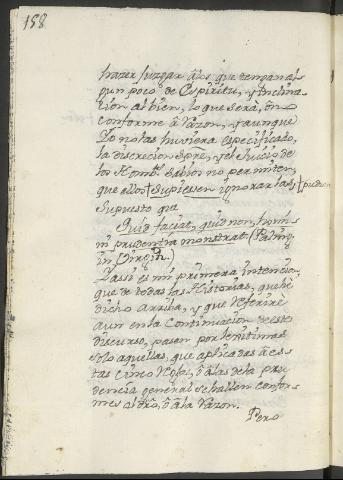 158
hazer juzgar â los que tengan al
gun poco de Espiritu, y inclina
cion al bien, lo que serà, ò no
conforme â razon, y aunque
Yo no las huviera especificado,
la discrecion spre, y el Juicio de
los Homb.s sabios no permiten,
que ellos supiessen ignorarlas,
pudies
supuesto que
Quid faciat, quid non, homi
ni prudentia monstrat (Paling
in Virgin.)
Yassi es mi primera intencion,
que de todas las Historias, que hè
dicho arriba, y que referirè
aun en la Continuacion de este
discurso, pasen por lexitimas
solo aquellas, que aplicadas â es
tas cinco Reglas, ò â las de la pru
dencia general se hallen confor
mes al dro, ò â la razon.
Pero